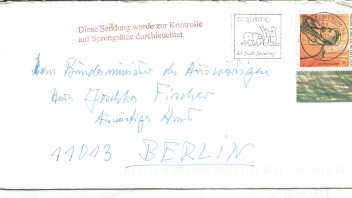 Diese Sendung wurde zur Kontrolle
auf Sprengsätze durchleuchtet
Dem Bundesminister des Auswärtigen
Herrn Joschka Fischer
Auswärtiges Amt
11013 BERLIN